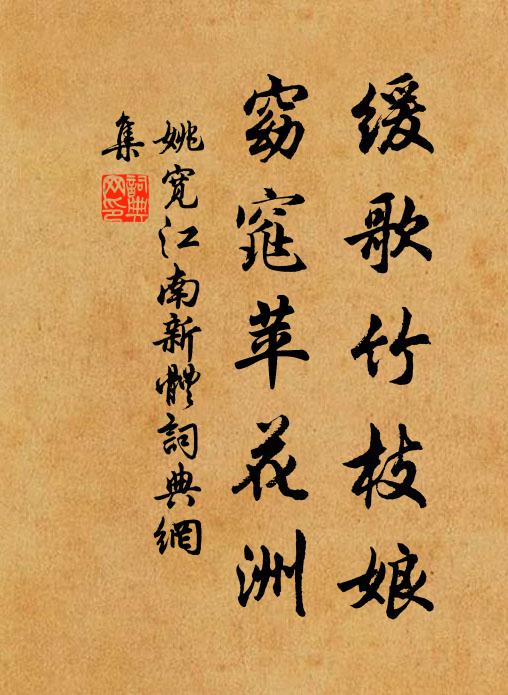 缓歌竹枝娘
窈窕苹花洲
姚寛江南新體詞典網
集
詞典
网印